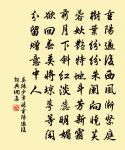 重陽過後西風漸緊庭
樹葉紛紛朱闌向曉芙
蓉妖艷特地鬥芳新霜
前月下斜紅淡蕊明媚
欲回春莫將瓊萼等閑
分留贈意中人
晏殊少年遊重陽過後